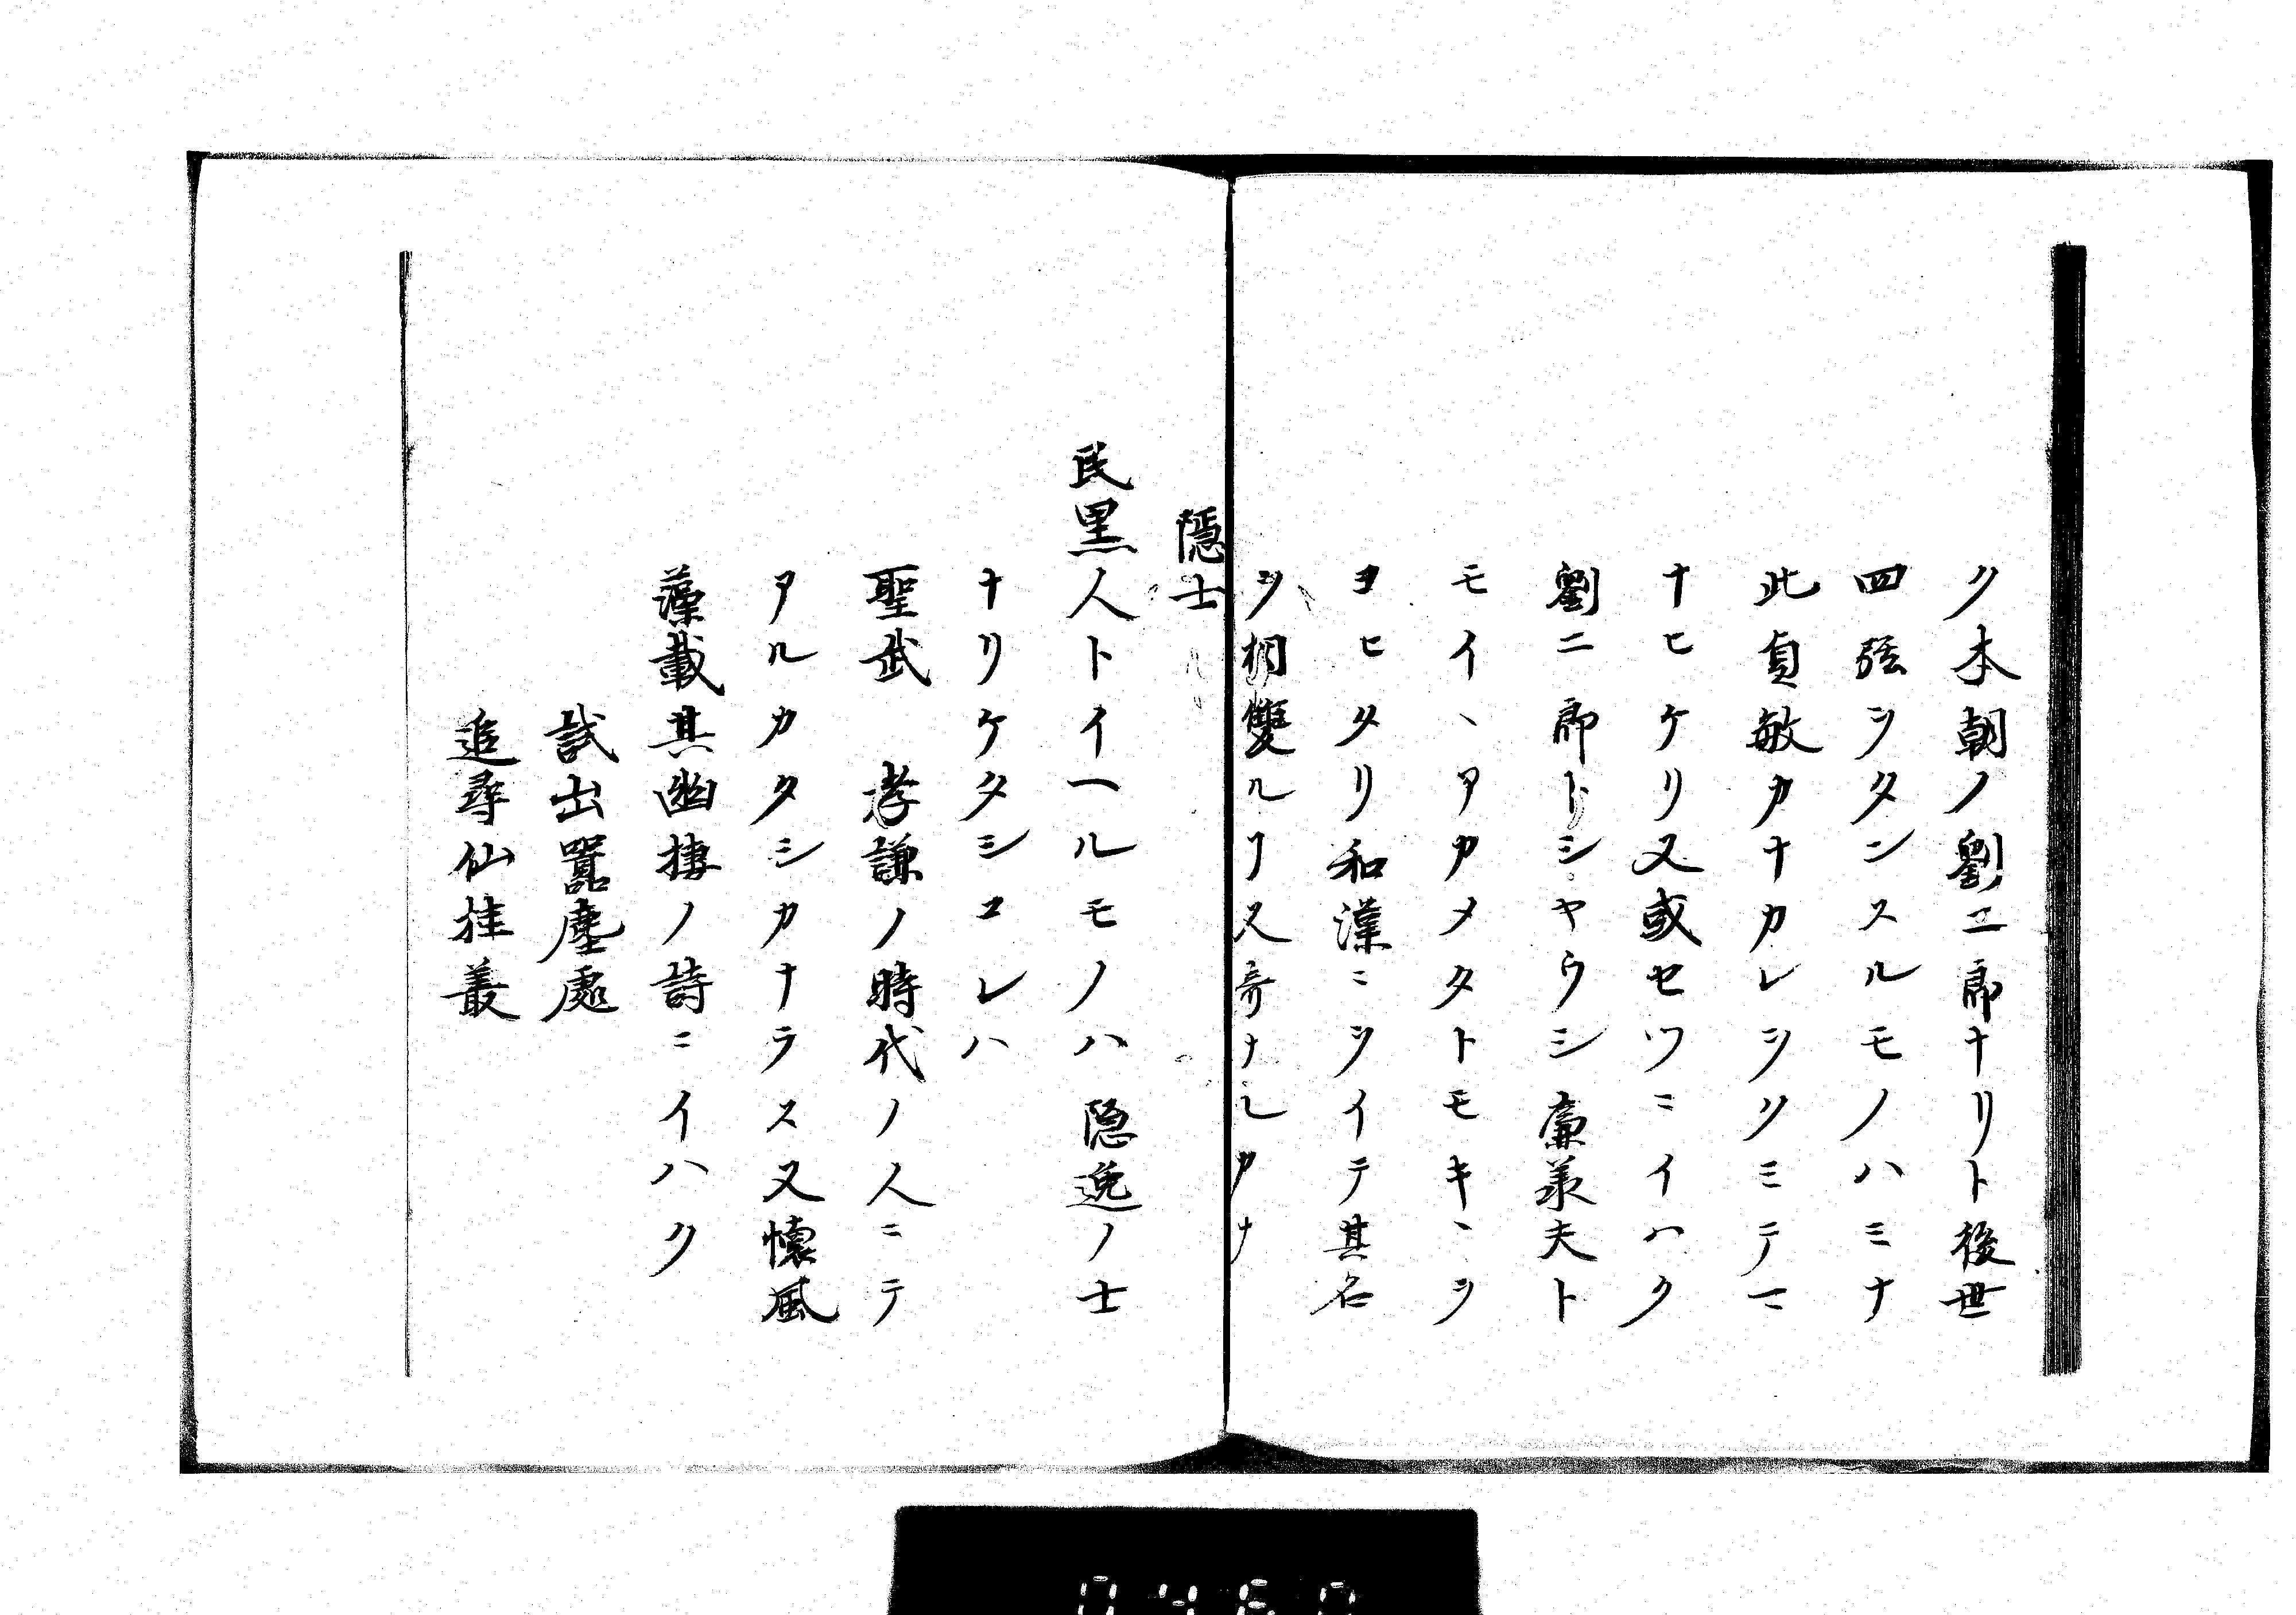 ク本朝ノ劉二郎ナリト後世
四弦ヲタンスルモノハミナ
此貞敏カナカレヲクミテマ
ナヒケリ又或セツニイハク
劉二郎トシヤウシ廉義夫ト
モイヽアカメタトモキヽヲ
ヨヒタリ和漢ニツイテ其名
ヲ相雙ルヿ又奇ナレカナ
隱士
民黒人トイヘルモノハ隠逸ノ士
ナリケタシコレハ
聖武 孝謙ノ時代ノ人ニテ
アルカタシカナラス又懐風
藻載其幽棲ノ詩ニイハク
試出囂塵處
追尋仙桂叢